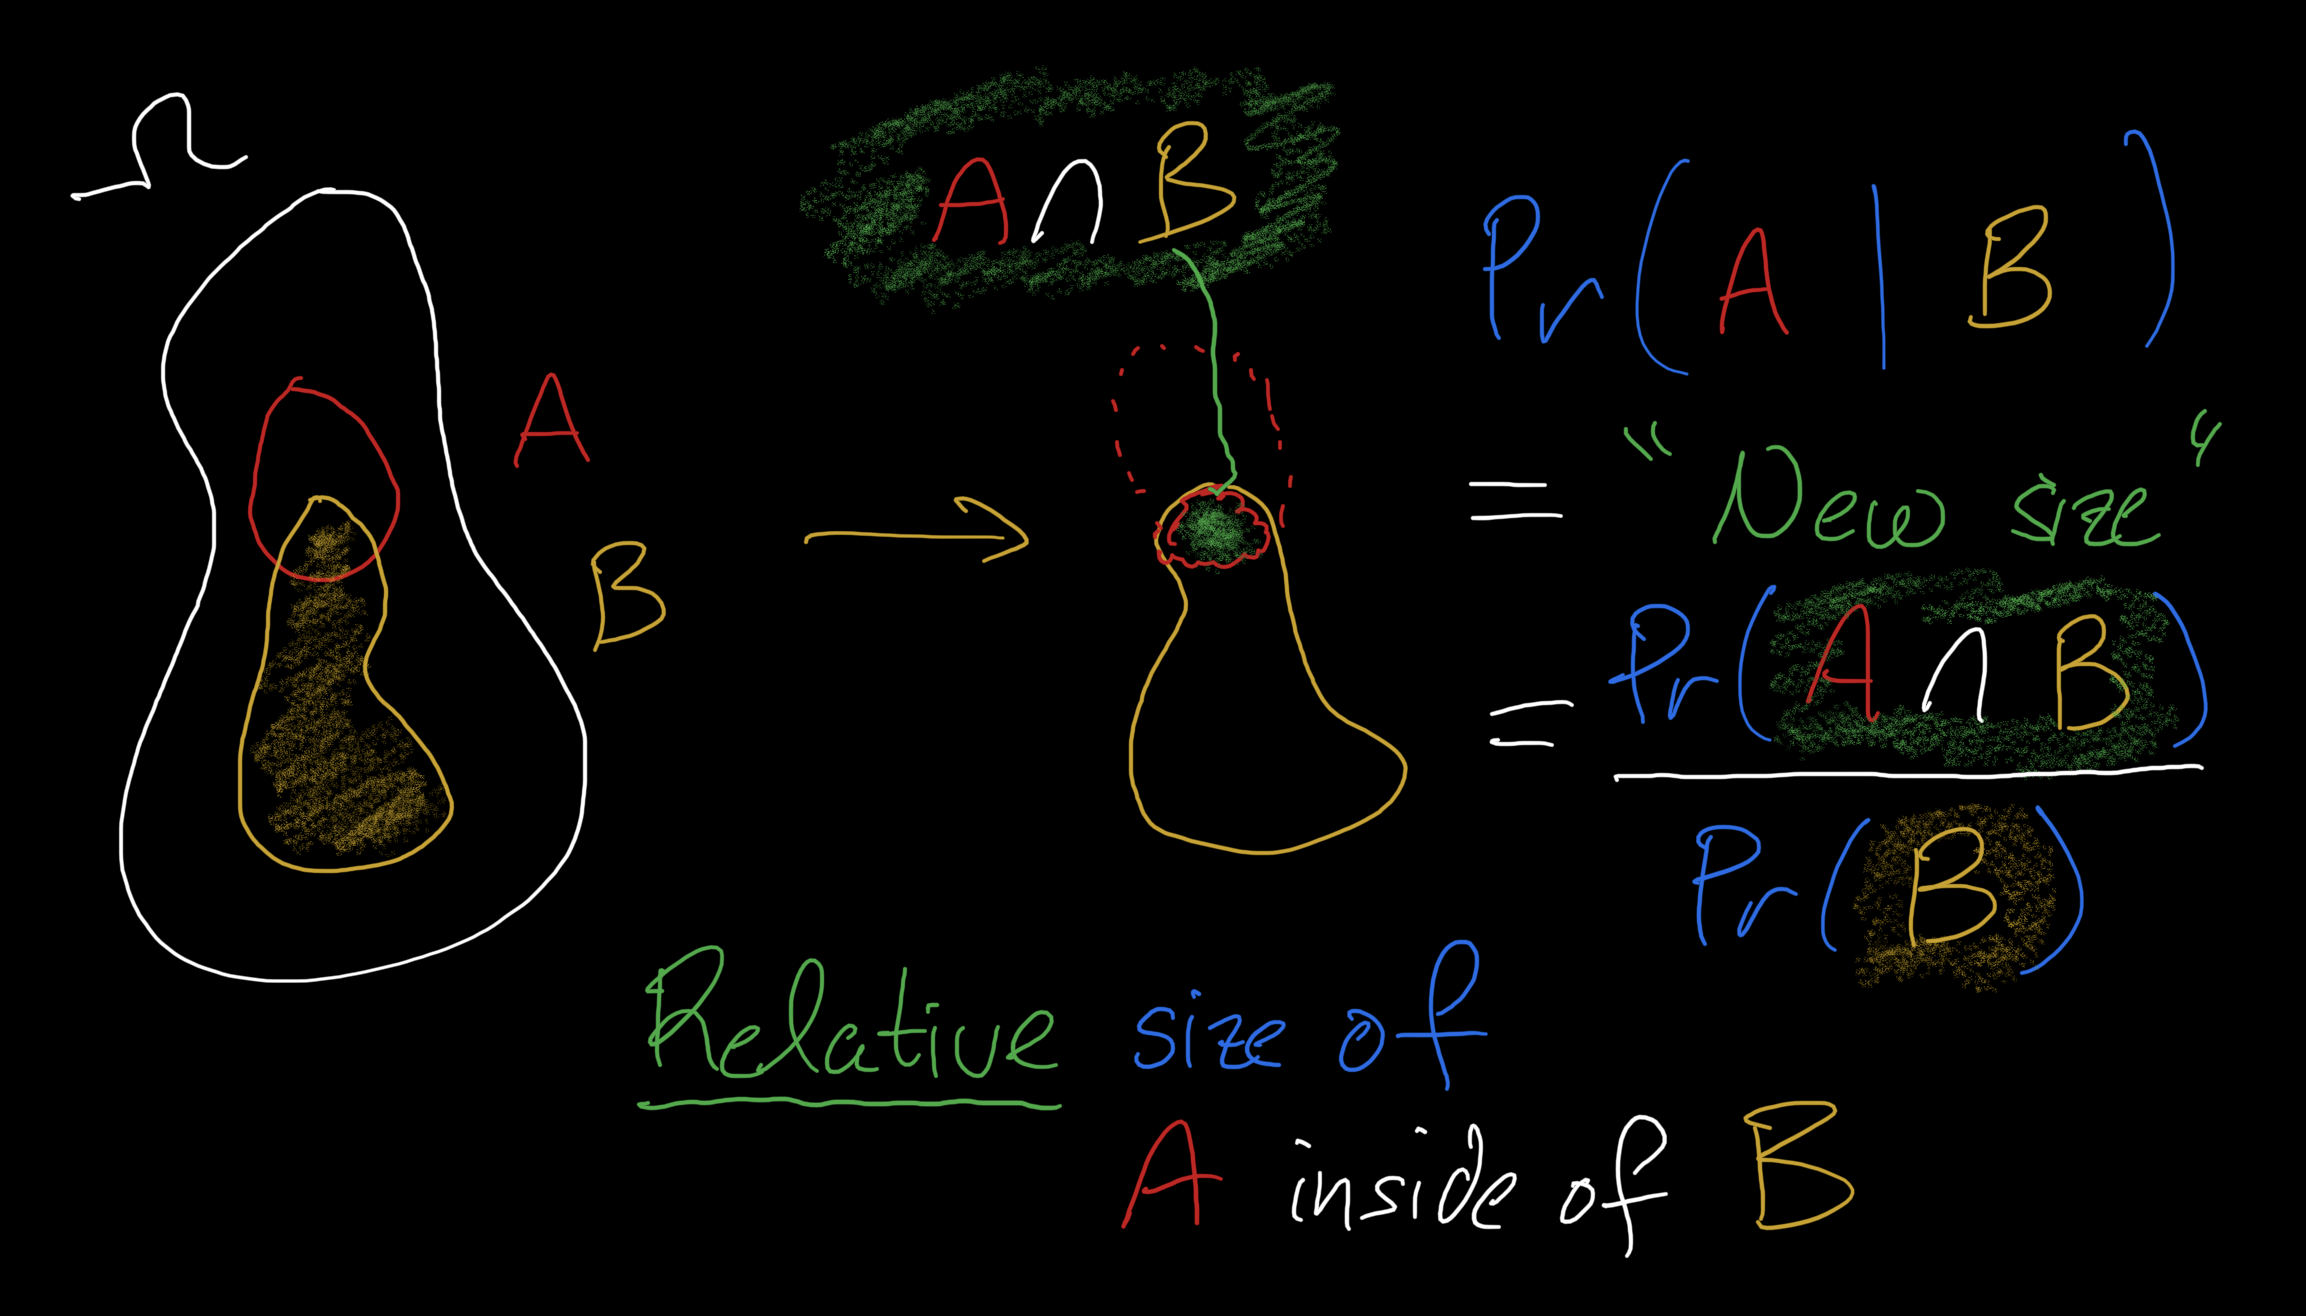 Ω
A
B
A ∩ B
Pr(A | B)
= "New size"
= Pr(A ∩ B)
Pr(B)
Relative size of
A inside of B